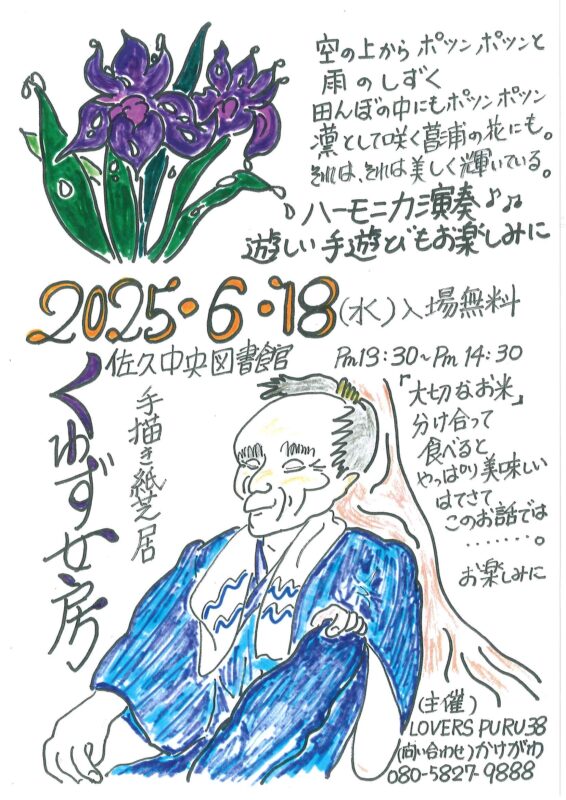 空の上から ポツンポツンと
雨のしずく
田んぼの中にもポツンポツン
凛として咲く菖浦の花にも。
それは、それは美しく輝いている。
ハーモニカ演奏♪♫
遊しい手遊びもお楽しみに
2025・6・18(水)入場無料
佐久中央図書館 Pm13:30~Pm14:30
くわず女房
手描き紙芝居
「大切なお米」
分け合って
食べると
やっぱり美味しい
はてさて
このお話では
‥‥‥‥。
お楽しみに
(主催)
LOVERS PURU38
(問い合わせ)かけがわ
080-5827-9888